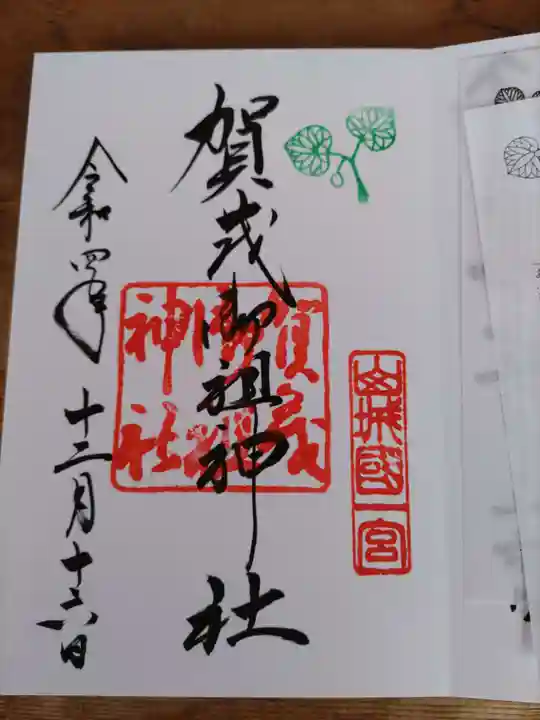 山城國一宮
賀茂御祖神社
賀茂
御祖
神社
令和四年
十二月十六日